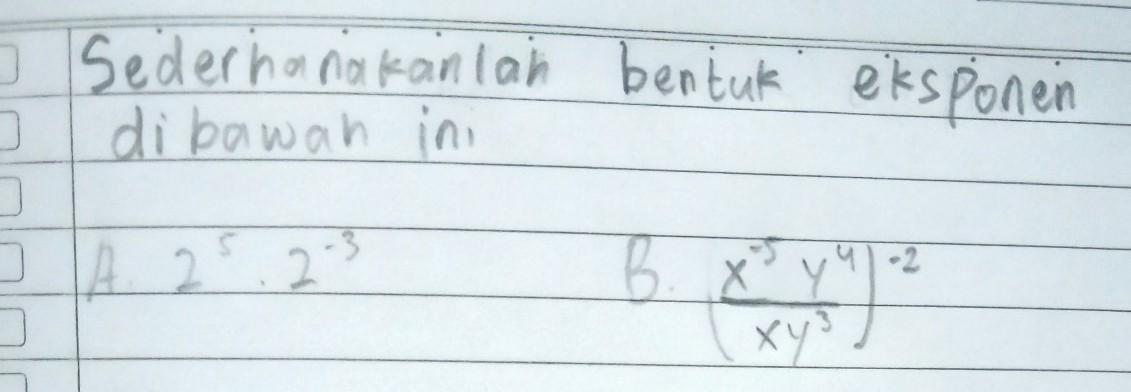 Sederhanakanlah bentuk eksponen
dibawah ini
A. 2⁵ . 2⁻³ B. (x⁻⁵ y⁴ / xy³)⁻²